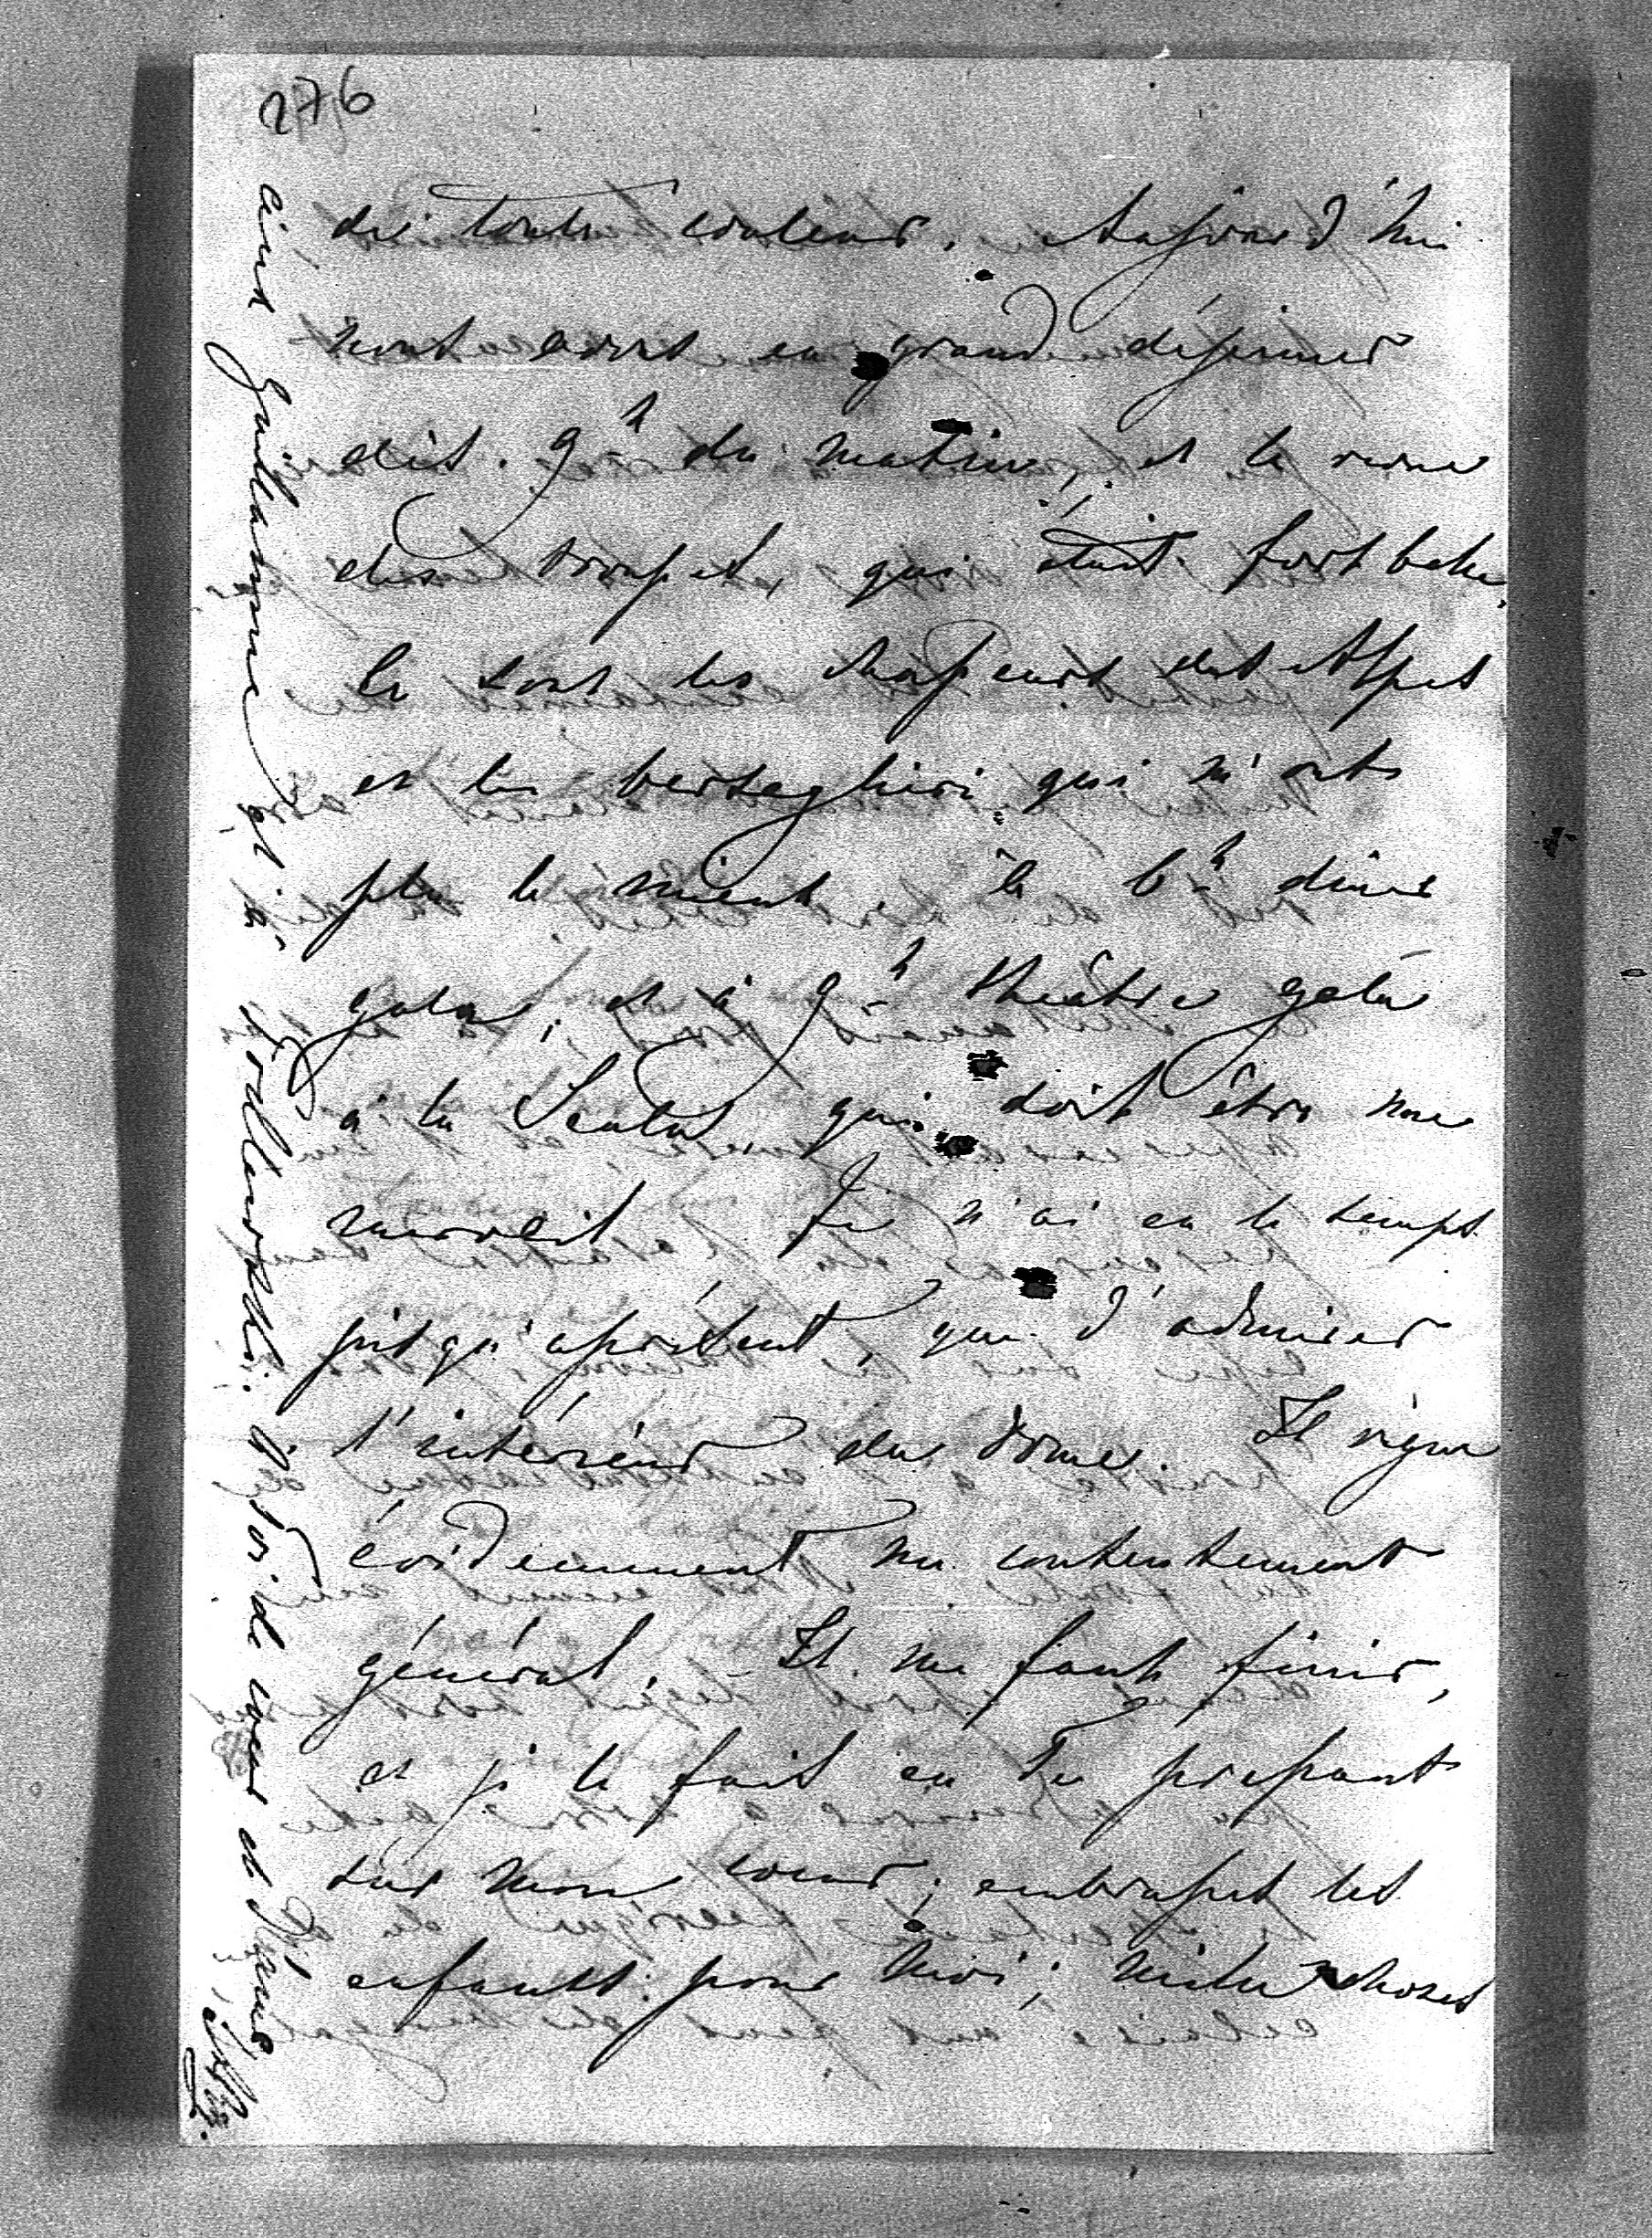 276
de toute couleur. Aujourd'hui
nous avons eu grand déjeuner
dès 9h du matin, et la revue
des troupes, qui était fort belle,
ce sont les chasseurs des Alpes
et les bersaglieri qui m'ont
plu le mieux. à 6h dîner
gala, et à 9h théâtre gala
à la Scala, qui doit être une
merveil. Je n'ai eu le temps
jusqu'aprésent, que d'admirer
l'intérieur du dome. Il règne
évidemment un contentement
général. - Il me faut finir,
et je le fais en Te pressant
sur mon coeur; embrasses les
enfants pour moi; mille choses
aux Guillaume et à
à Toi de coeur et d'âme